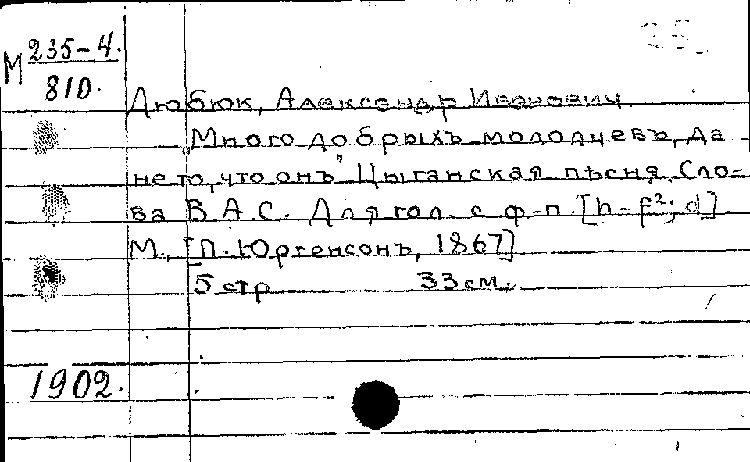 М 235-4.
810.
Дюбюк, Александр Иванович
Много добрыхъ молодцевъ, да
не то, что онъ" Цыганская пѣсня. Сло-
ва В. А. С. Для гол. с ф-п. [h-f²; d]
М., [П. Юргенсонъ, 1867]
5 стр 33 см.
1902.